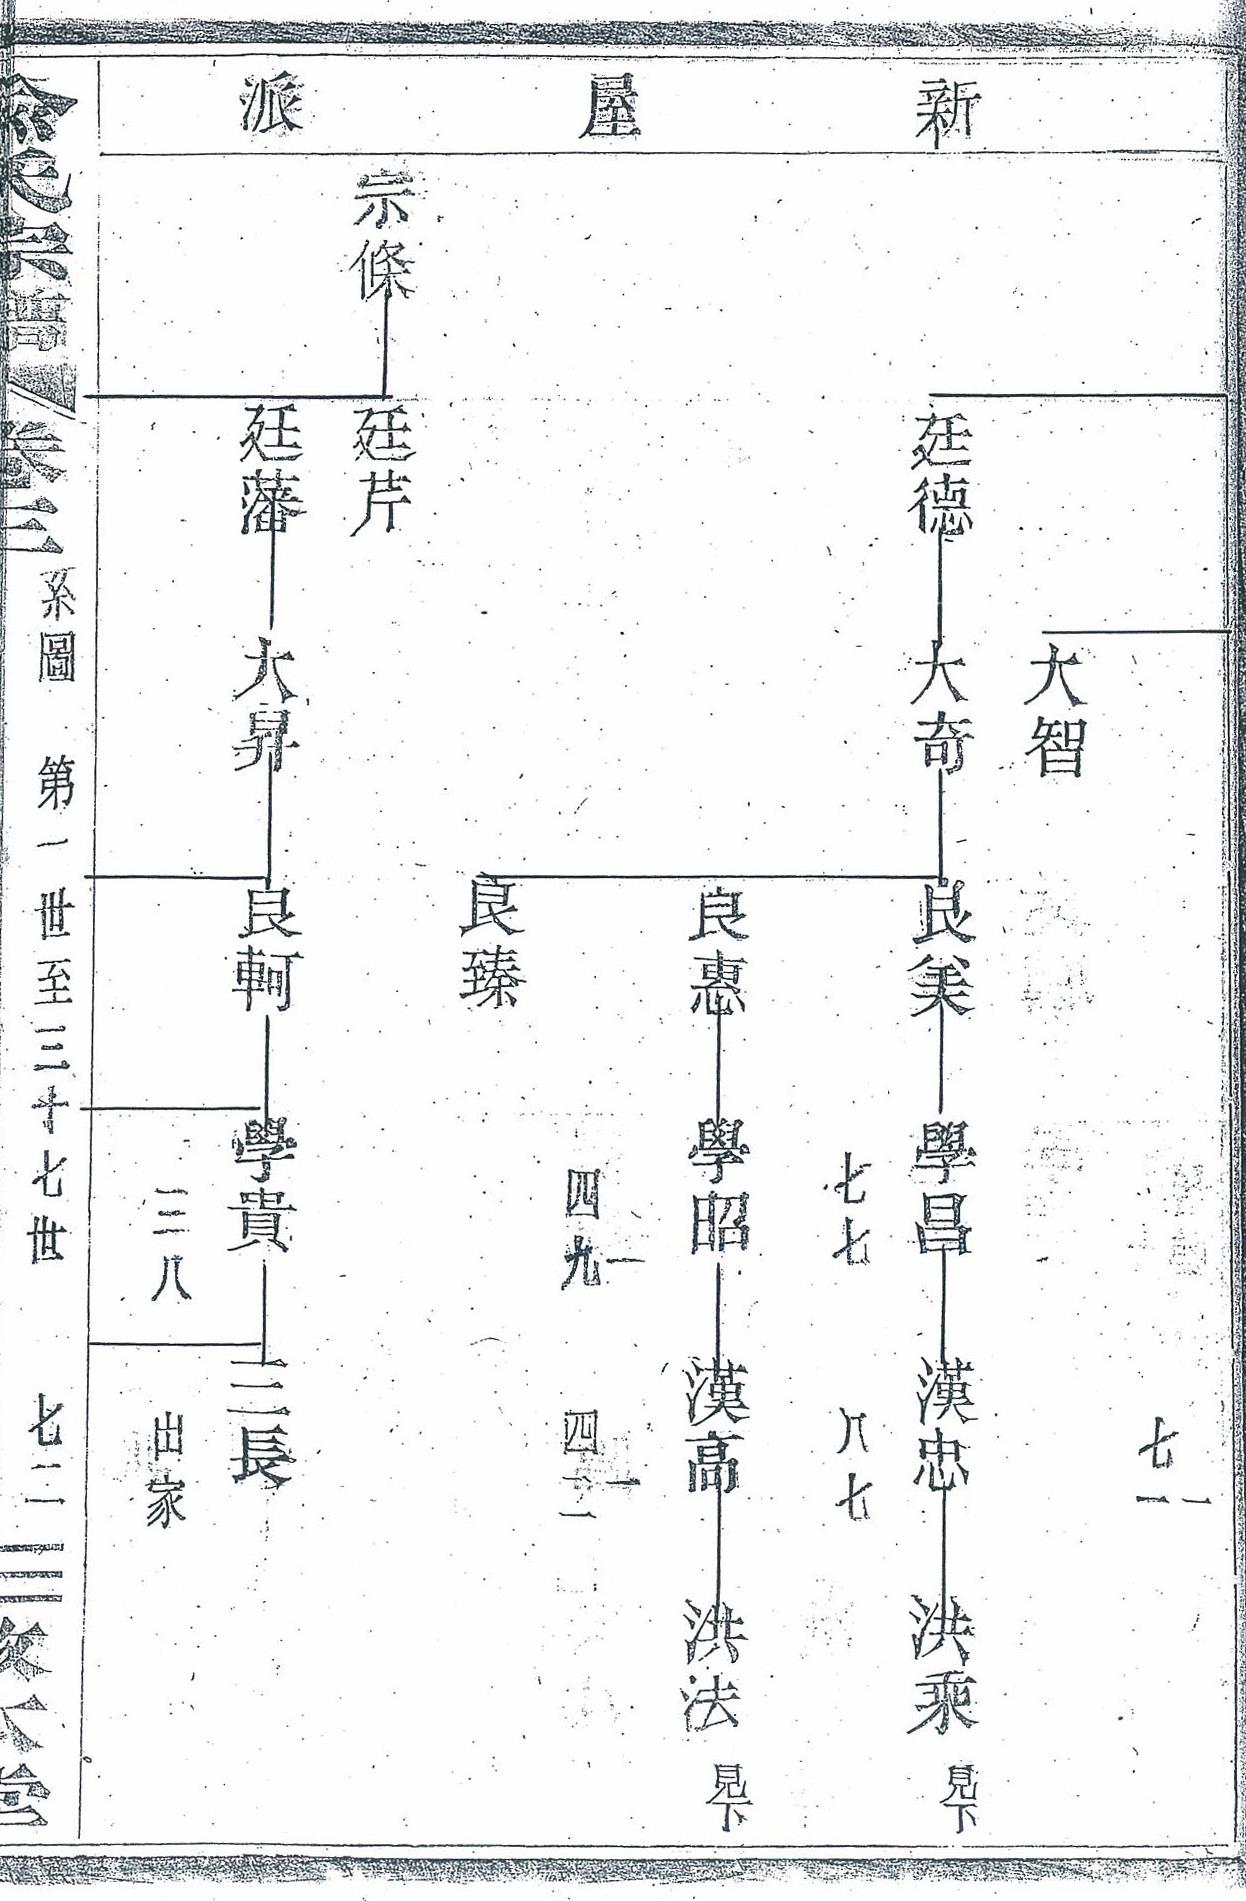 新屋派
大智
七一一
廷德
大奇
良美
學昌
漢忠
洪乘
見下
七七
八七
良惠
學昭
漢高
洪法
見下
四九一
四二一
良臻
宗條
廷芹
廷藩
大昇
良軻
學貴
三長
三八
出家
俞氏宗譜
卷三
系圖
第一世至三十七世
七二